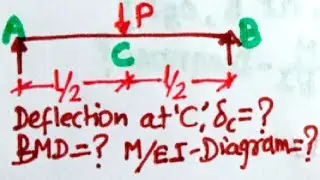 P
A B
C
L/2 L/2
Deflection at 'C', δc=?
BMD=? M/EI-Diagram=?